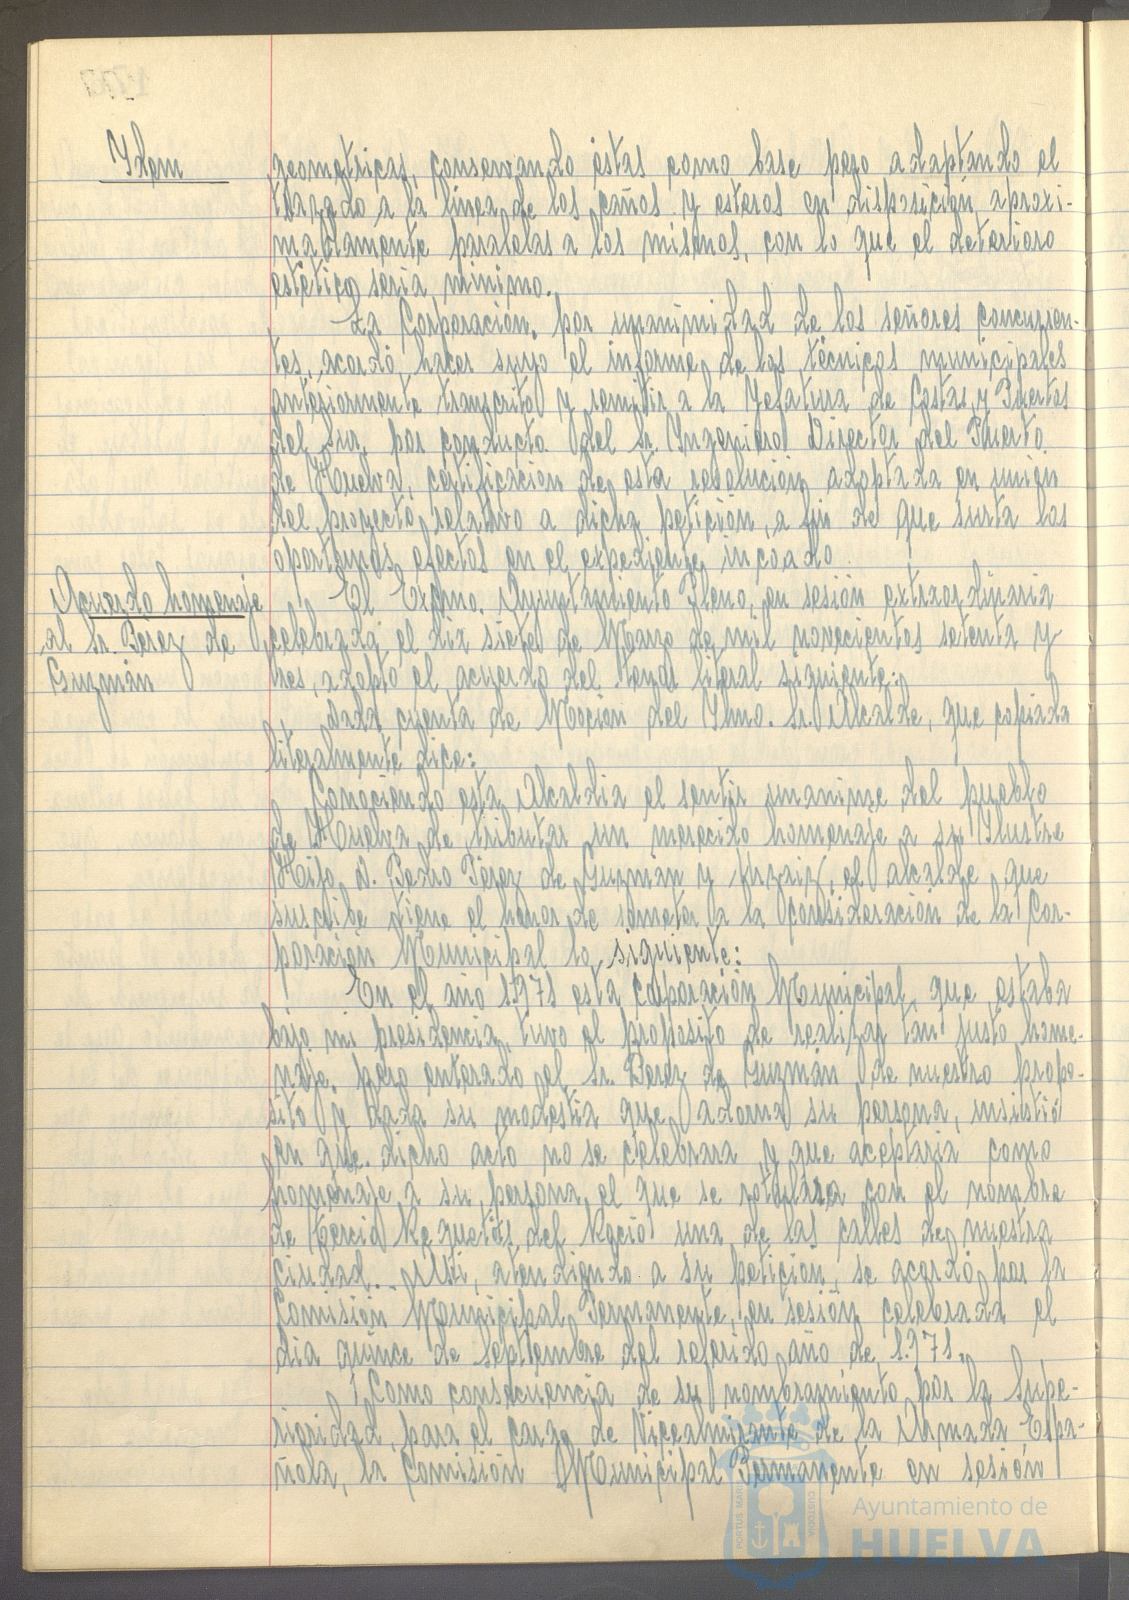 Idem
geometricas, conservando éstas como base pero adaptando el
trazado a la línea de los caños y esteros en disposición aproxi-
madamente paralelas a los mismos, con lo que el deterioro
estético sería mínimo.
La Corporación, por unanimidad de los señores concurren-
tes, acordó hacer suyo el informe de los técnicos municipales
anteriormente transcrito y remitir a la Jefatura de Costas y Puertos
del Sur, por conducto del Sr. Ingeniero Director del Puerto
de Huelva, certificación de esta resolución adoptada en unión
del proyecto relativo a dicha petición, a fin de que surta los
oportunos efectos en el expediente incoado.
Acuerdo homenaje
al Sr. Pérez de
Guzmán
El Excmo. Ayuntamiento Pleno, en sesión extraordinaria
celebrada el día siete de Marzo de mil novecientos setenta y
tres, adoptó el acuerdo del tenor literal siguiente:
Dada cuenta de Moción del Ilmo. Sr. Alcalde, que copiada
literalmente dice:
Conociendo esta Alcaldia el sentir unanime del pueblo
de Huelva de tributar un merecido homenaje a su Ilustre
Hijo D. Pedro Pérez de Guzmán y Urzaiz, el alcalde que
suscribe tiene el honor de someter a la consideración de la Cor-
poración Municipal lo siguiente:
En el año 1.971 esta Corporación Municipal, que estaba
bajo mi presidencia, tuvo el proposito de realizar tan justo home-
naje, pero enterado el Sr. Pérez de Guzmán de nuestro propo-
sito y dada su modestia que adorna su persona, insistió
en que dicho acto no se celebrara y que aceptaria como
homenaje a su persona, el que se rotulara con el nombre
de Tercio Requetés del Rocío una de las calles de nuestra
ciudad. Así, atendiendo a su petición, se acordó por la
Comisión Municipal Permanente en sesión celebrada el
día quince de Septiembre del referido año de 1.971.
Como consecuencia de su nombramiento por la Supe-
rioridad, para el cargo de Vicealmirante de la Armada Espa-
ñola, la Comisión Municipal Permanente en sesión
PORTUS MARIS
CUSTODIA
Ayuntamiento de
HUELVA